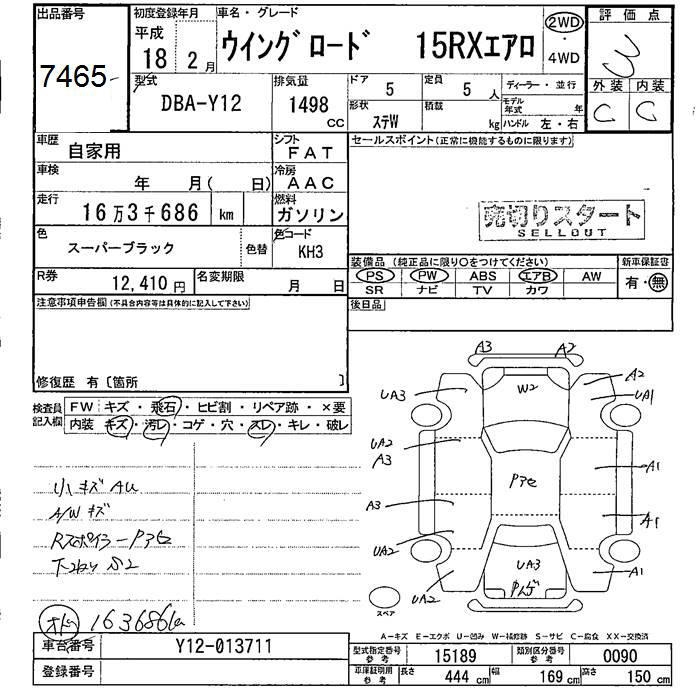 出品番号
7465
初度登録年月
平成
18 2月
車名・グレード
ウイングロード 15RXエアロ
2WD
・
4WD
評価点
3
外装 内装
C C
型式
DBA-Y12
排気量
1498
CC
ドア
5
定員
5 人
ディーラー・並行
形状
ステW
積載
kg
モデル年式
年
ハンドル 左・右
車歴
自家用
シフト
FAT
車検
年 月( 日)
冷房
AAC
走行
16万3千686 km
燃料
ガソリン
色
スーパーブラック
色替
色コード
KH3
R券
12,410円
名変期限
月 日
セールスポイント(正常に機能するものに限ります)
売切りスタート
SELLOUT
装備品 (純正品に限り○をつけてください)
PS PW ABS エアB AW
SR ナビ TV カワ
新車保証書
有・無
後日品
注意事項申告欄(不具合内容等は具体的に記入して下さい)
修復歴 有〔箇所 〕
検査員記入欄
FW キズ・飛石・ヒビ割・リペア跡・×要
内装 キズ・汚レ・コゲ・穴・スレ・キレ・破レ
小キズ AU
A/W キズ
Rスポイラー P
S2
163686
A3 A2
UA3 W2 A2
UA1
UA2
A3
A1
A3
A1
UA2
UA3
UA2
A1
スペア
A-キズ E-エクボ U-凹み W-補修跡 S-サビ C-腐食 XX-交換済
車台番号
Y12-013711
登録番号
型式指定番号
参考
15189
類別区分番号
参考
0090
車庫証明用
参考
長さ
444 cm
幅
169 cm
高さ
150 cm